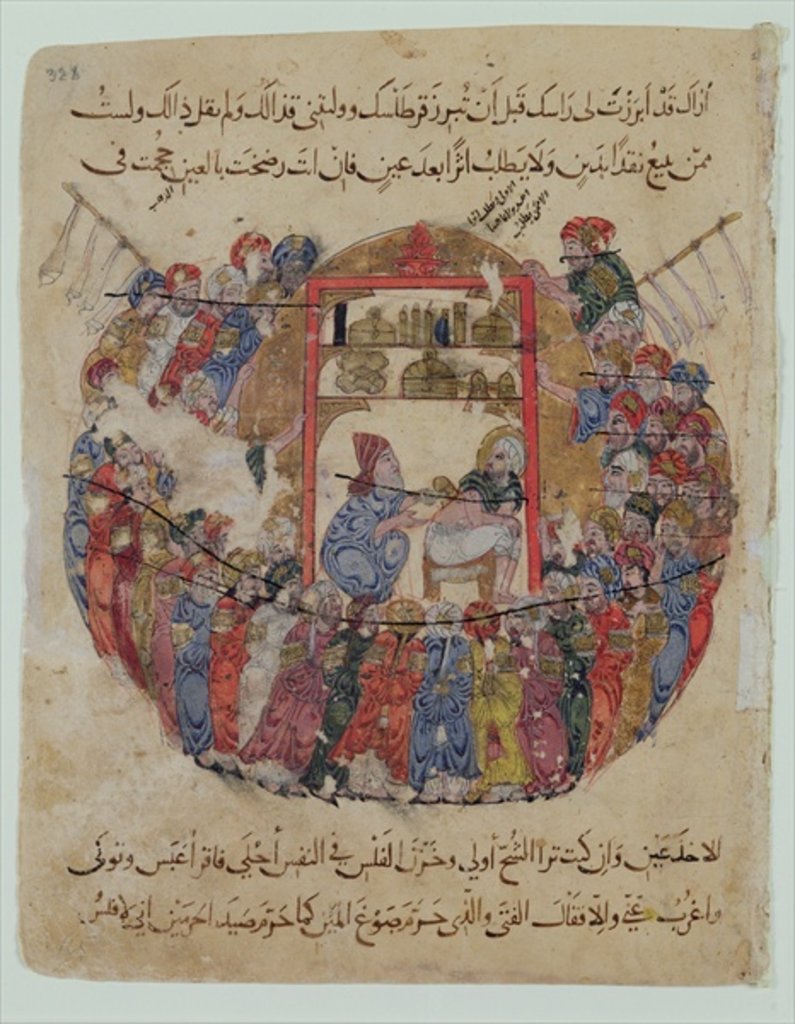 328
أراك قد أبرزت لي راسك قبل أن تبرز قرطاسك وولتني قذالك ولم يقل ذالك ولست
ممن يبيع نقدا بدين ولا يطلب اثرا بعد عين فان انت رضخت بالعين حجمت في
الاخدعين وان كنت ترا الشح أولي وخزن الفلس في النفس أحلي فاقرا عبس وتولى
واغرب عني والا فقال الفتى والذي حرم صوغ المين كما حرم صيد الحرمين اني لافلس